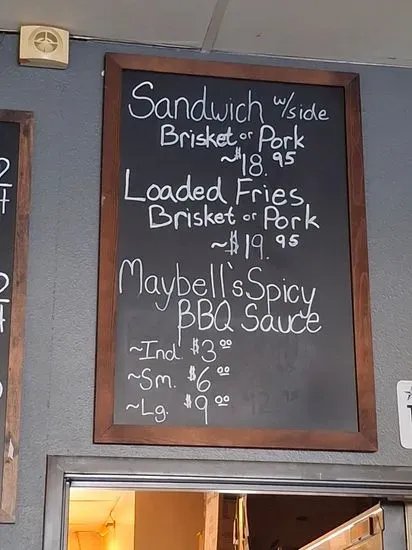 Sandwich w/side
Brisket or Pork
~$18.95
Loaded Fries
Brisket or Pork
~$19.95
Maybell's Spicy
BBQ Sauce
~Ind. $3.00
~Sm. $6.00
~Lg. $9.00